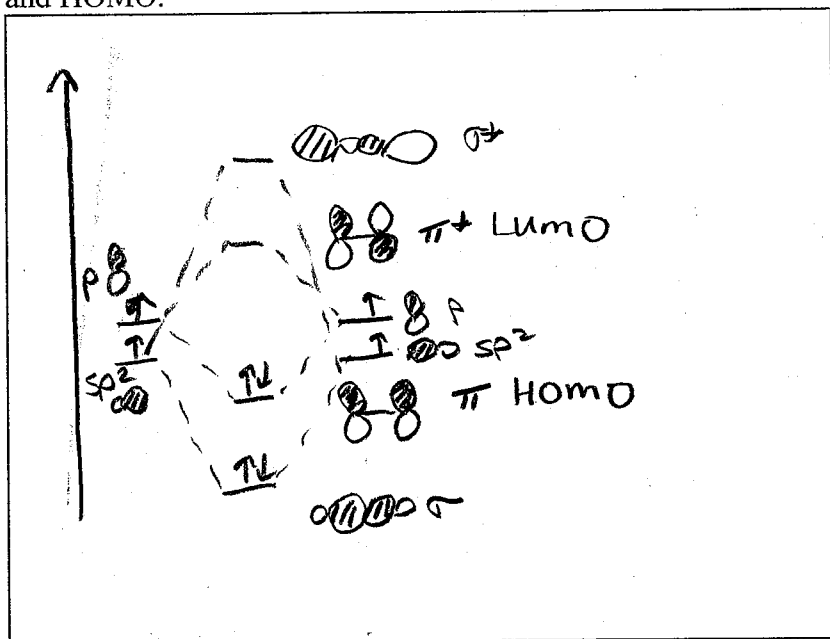 and HOMO.
σ*
π* LUMO
p
p
sp²
sp²
π HOMO
σ